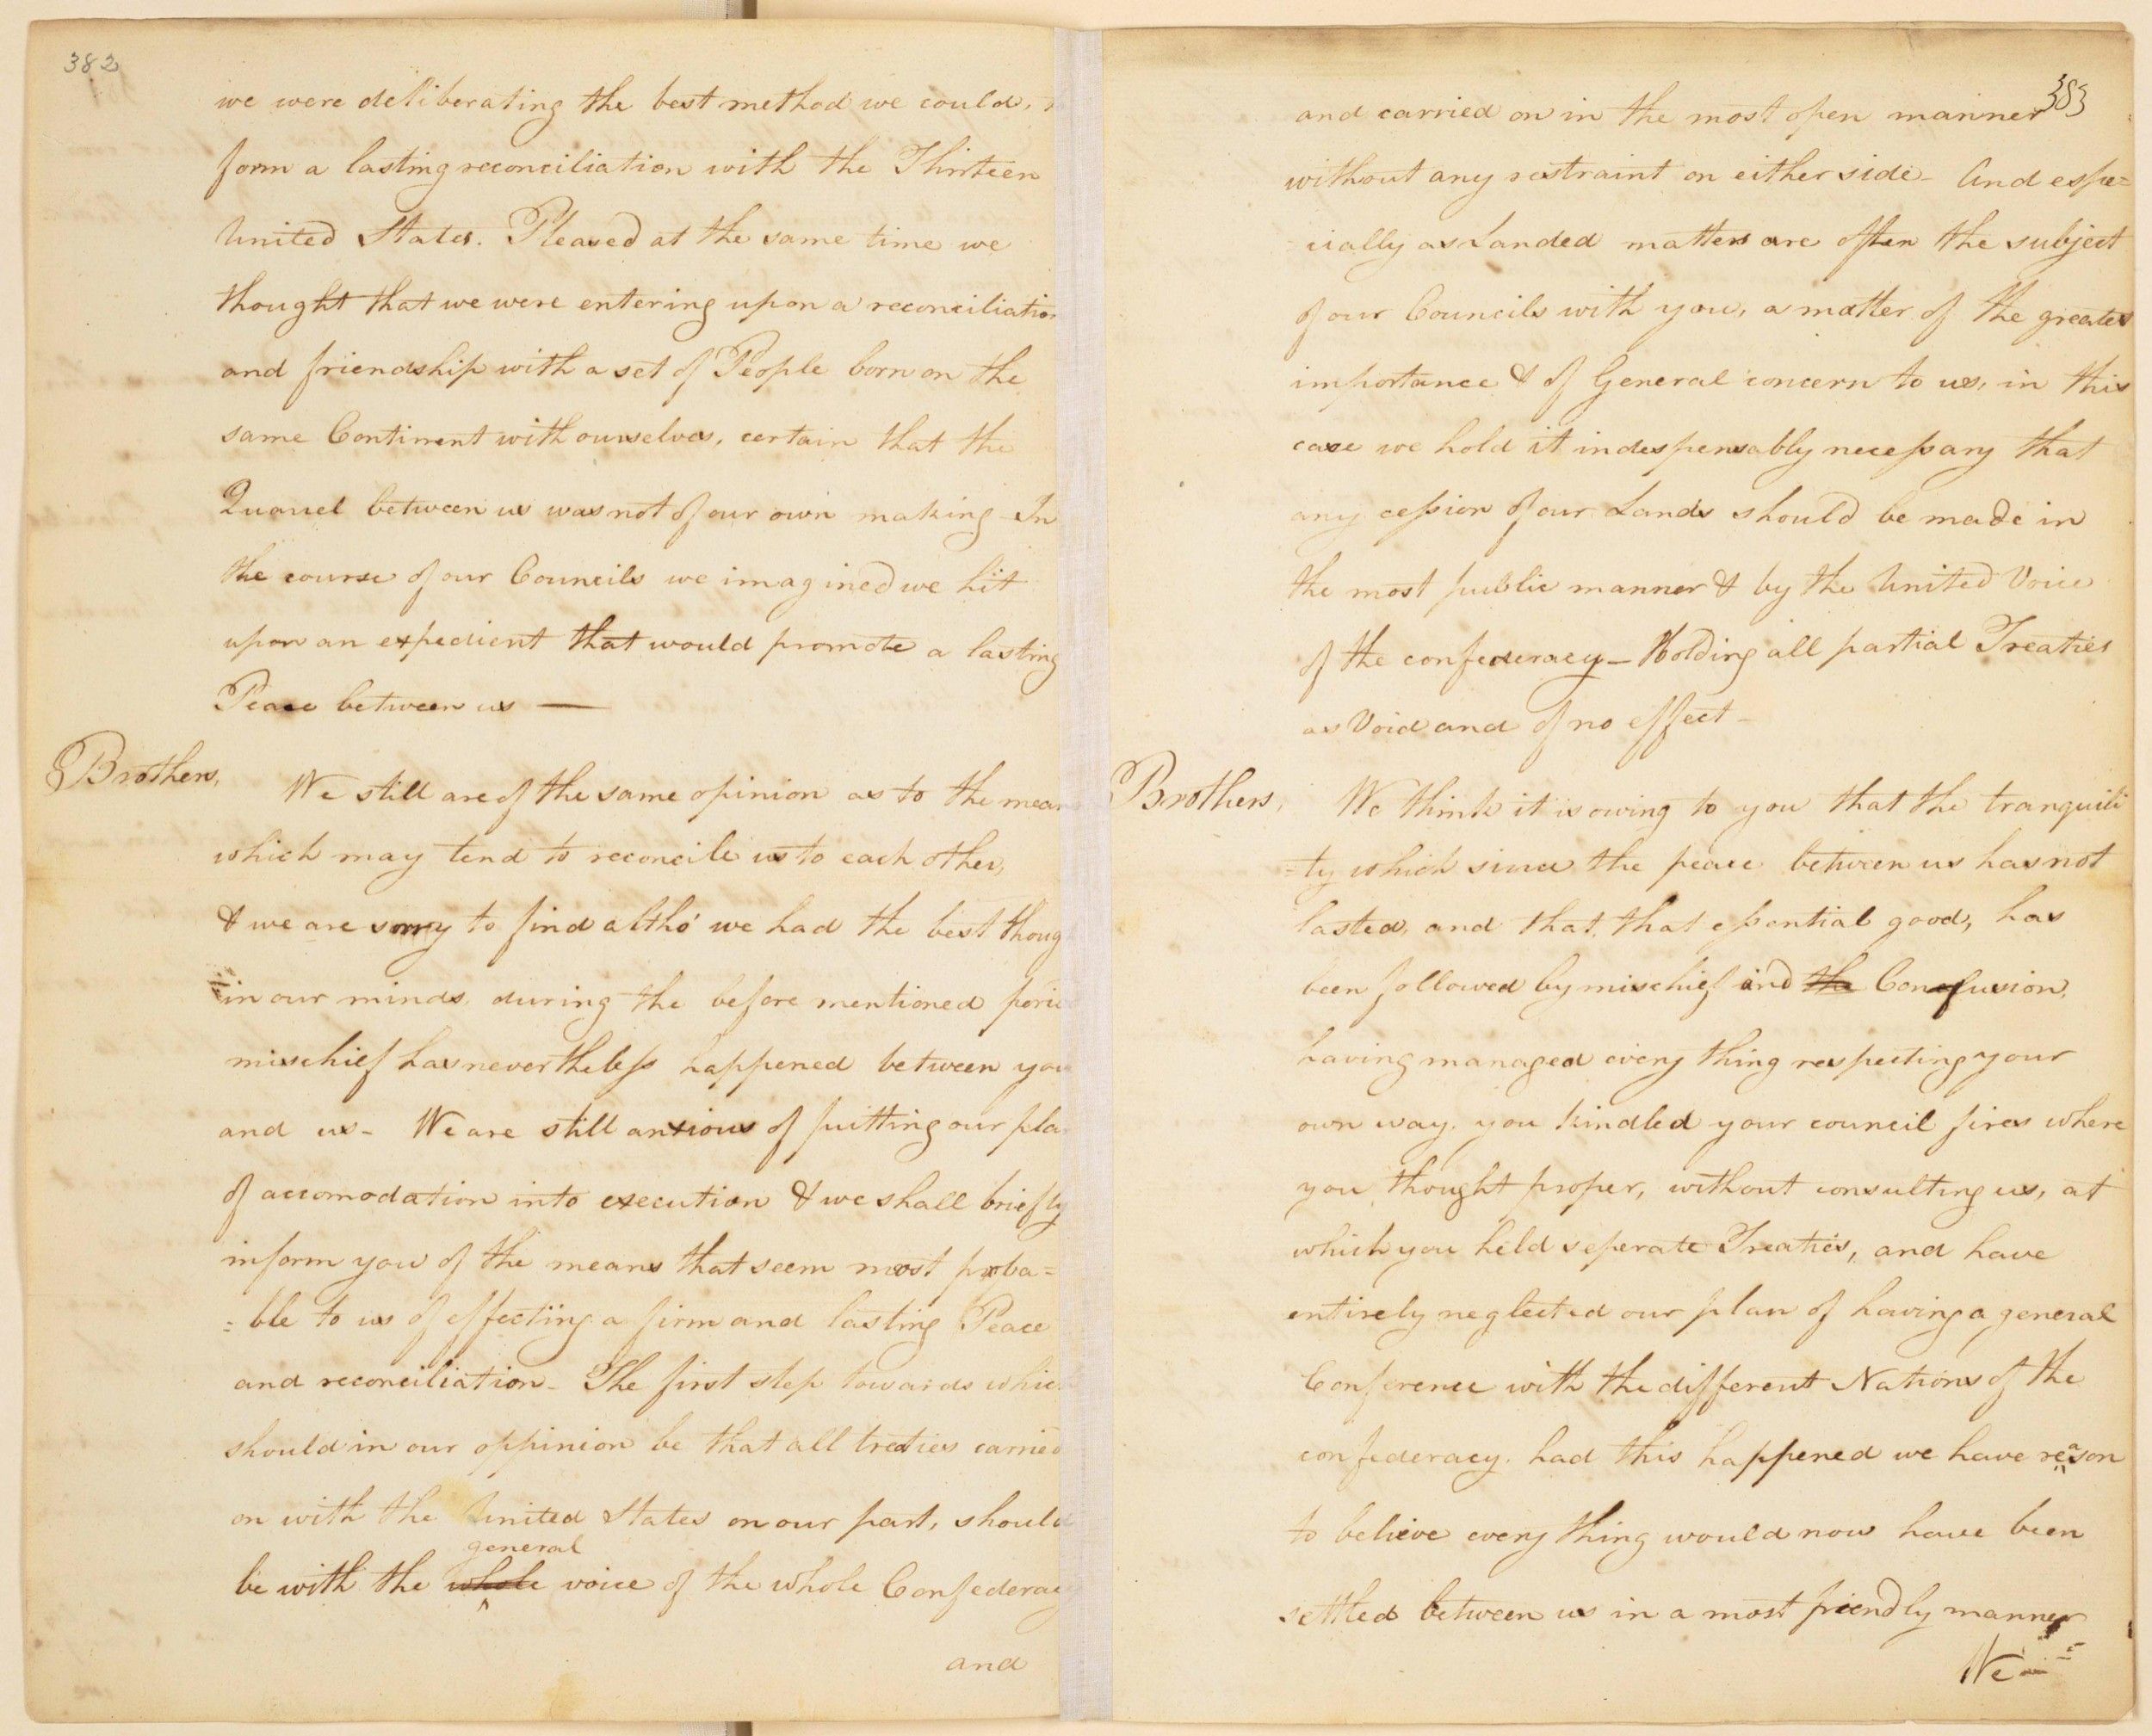 382
we were deliberating the best method we could,
form a lasting reconciliation with the Thirteen
United States. Pleased at the same time we
thought that we were entering upon a reconciliation
and friendship with a set of People born on the
same Continent with ourselves, certain that the
Quarrel between us was not of our own making - In
the course of our Councils we imagined we hit
upon an expedient that would promote a lasting
Peace between us —
Brothers,
We still are of the same opinion as to the mean
which may tend to reconcile us to each other,
& we are sorry to find altho' we had the best thoug
in our minds, during the before mentioned perio
mischief has nevertheless happened between you
and us - We are still anxious of putting our pla
of accomodation into execution & we shall briefly
inform you of the means that seem most proba=
=ble to us of effecting a firm and lasting Peace
and reconciliation - The first step towards which
should in our oppinion be that all treaties carried
on with the United States on our part, should
general
be with the whole voice of the whole Confederacy
and
383
and carried on in the most open manner
without any restraint on either side - And espe=
=cially as Landed matters are often the subject
of our Councils with you, a matter of the greatest
importance & of General concern to us, in this
case we hold it indespensably necessary that
any cession of our Lands should be made in
the most public manner & by the United Voice
of the confederacy — Holding all partial Treaties
as Void and of no effect -
Brothers,
We think it is owing to you that the tranquili
=ty which since the peace between us has not
lasted, and that, that essential good, has
been followed by mischief and the Confusion,
having managed every thing respecting your
own way, you kindled your council fires where
you thought proper, without consulting us, at
which you held seperate Treaties, and have
entirely neglected our plan of having a general
Conference with the different Nations of the
confederacy. had this happened we have reason
to believe every thing would now have been
settled between us in a most friendly manner
We